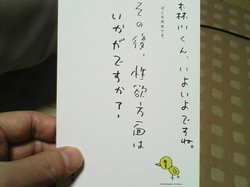 木林川くん、いよいよですね。
その後、性欲方面は
いかがですか?